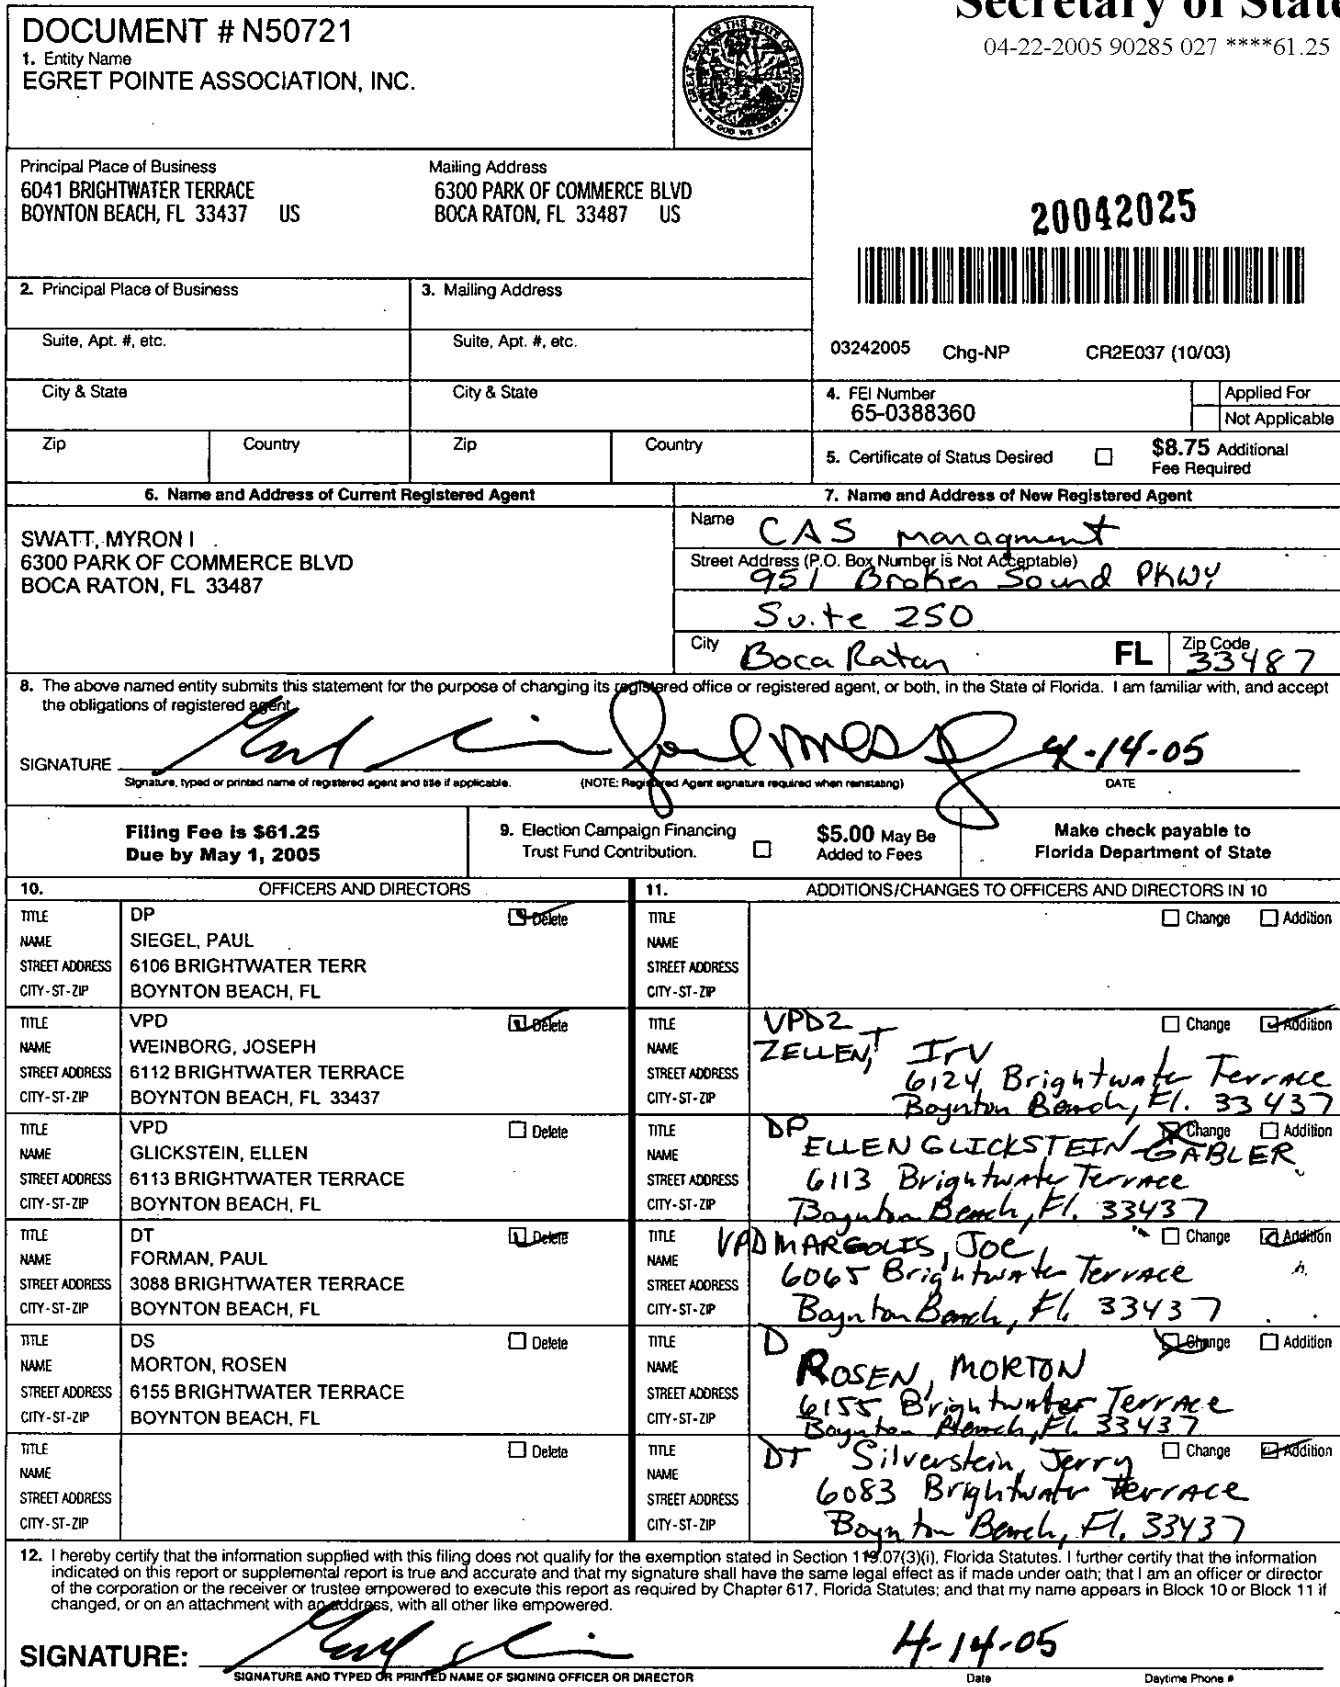 Secretary of State
04-22-2005 90285 027 ****61.25
DOCUMENT # N50721
1. Entity Name
EGRET POINTE ASSOCIATION, INC.
GREAT SEAL OF THE STATE OF FLORIDA
IN GOD WE TRUST
Principal Place of Business
6041 BRIGHTWATER TERRACE
BOYNTON BEACH, FL 33437 US
Mailing Address
6300 PARK OF COMMERCE BLVD
BOCA RATON, FL 33487 US
20042025
2. Principal Place of Business
3. Mailing Address
Suite, Apt. #, etc.
Suite, Apt. #, etc.
03242005 Chg-NP CR2E037 (10/03)
City & State
City & State
4. FEI Number
65-0388360
Applied For
Not Applicable
Zip
Country
Zip
Country
5. Certificate of Status Desired
$8.75 Additional
Fee Required
6. Name and Address of Current Registered Agent
7. Name and Address of New Registered Agent
SWATT, MYRON I
6300 PARK OF COMMERCE BLVD
BOCA RATON, FL 33487
Name CAS Managment
Street Address (P.O. Box Number is Not Acceptable)
951 Broken Sound PKWY
Suite 250
City Boca Raton FL Zip Code 33487
8. The above named entity submits this statement for the purpose of changing its registered office or registered agent, or both, in the State of Florida. I am familiar with, and accept
the obligations of registered agent.
SIGNATURE 4-14-05
Signature, typed or printed name of registered agent and title if applicable. (NOTE: Registered Agent signature required when reinstating) DATE
Filing Fee is $61.25
Due by May 1, 2005
9. Election Campaign Financing
Trust Fund Contribution.
$5.00 May Be
Added to Fees
Make check payable to
Florida Department of State
10. OFFICERS AND DIRECTORS
11. ADDITIONS/CHANGES TO OFFICERS AND DIRECTORS IN 10
TITLE DP Delete
NAME SIEGEL, PAUL
STREET ADDRESS 6106 BRIGHTWATER TERR
CITY-ST-ZIP BOYNTON BEACH, FL
TITLE Change Addition
NAME
STREET ADDRESS
CITY-ST-ZIP
TITLE VPD Delete
NAME WEINBORG, JOSEPH
STREET ADDRESS 6112 BRIGHTWATER TERRACE
CITY-ST-ZIP BOYNTON BEACH, FL 33437
TITLE VPD2 Change Addition
NAME ZELLEN, Irv
STREET ADDRESS 6124 Brightwater Terrace
CITY-ST-ZIP Boynton Beach, Fl. 33437
TITLE VPD Delete
NAME GLICKSTEIN, ELLEN
STREET ADDRESS 6113 BRIGHTWATER TERRACE
CITY-ST-ZIP BOYNTON BEACH, FL
TITLE DP Change Addition
NAME ELLEN GLICKSTEIN-GABLER
STREET ADDRESS 6113 Brightwater Terrace
CITY-ST-ZIP Boynton Beach, Fl. 33437
TITLE DT Delete
NAME FORMAN, PAUL
STREET ADDRESS 3088 BRIGHTWATER TERRACE
CITY-ST-ZIP BOYNTON BEACH, FL
TITLE VPD MARGOLIS, JOE Change Addition
NAME
STREET ADDRESS 6065 Brightwater Terrace
CITY-ST-ZIP Boynton Beach, Fl. 33437
TITLE DS Delete
NAME MORTON, ROSEN
STREET ADDRESS 6155 BRIGHTWATER TERRACE
CITY-ST-ZIP BOYNTON BEACH, FL
TITLE D Change Addition
NAME ROSEN, MORTON
STREET ADDRESS 6155 Brightwater Terrace
CITY-ST-ZIP Boynton Beach, Fl. 33437
TITLE Delete
NAME
STREET ADDRESS
CITY-ST-ZIP
TITLE DT Silverstein, Jerry Change Addition
NAME
STREET ADDRESS 6083 Brightwater Terrace
CITY-ST-ZIP Boynton Beach, Fl. 33437
12. I hereby certify that the information supplied with this filing does not qualify for the exemption stated in Section 119.07(3)(i), Florida Statutes. I further certify that the information
indicated on this report or supplemental report is true and accurate and that my signature shall have the same legal effect as if made under oath; that I am an officer or director
of the corporation or the receiver or trustee empowered to execute this report as required by Chapter 617, Florida Statutes; and that my name appears in Block 10 or Block 11 if
changed, or on an attachment with an address, with all other like empowered.
SIGNATURE: 4-14-05
SIGNATURE AND TYPED OR PRINTED NAME OF SIGNING OFFICER OR DIRECTOR Date Daytime Phone #